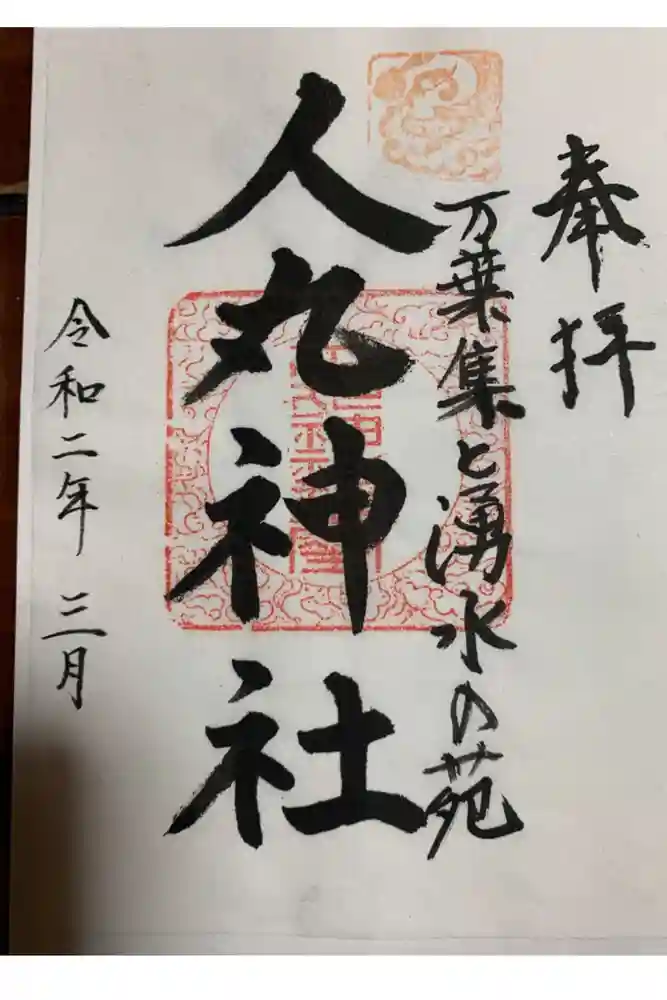 奉拝
万葉集と湧水の苑
人丸神社
令和二年三月